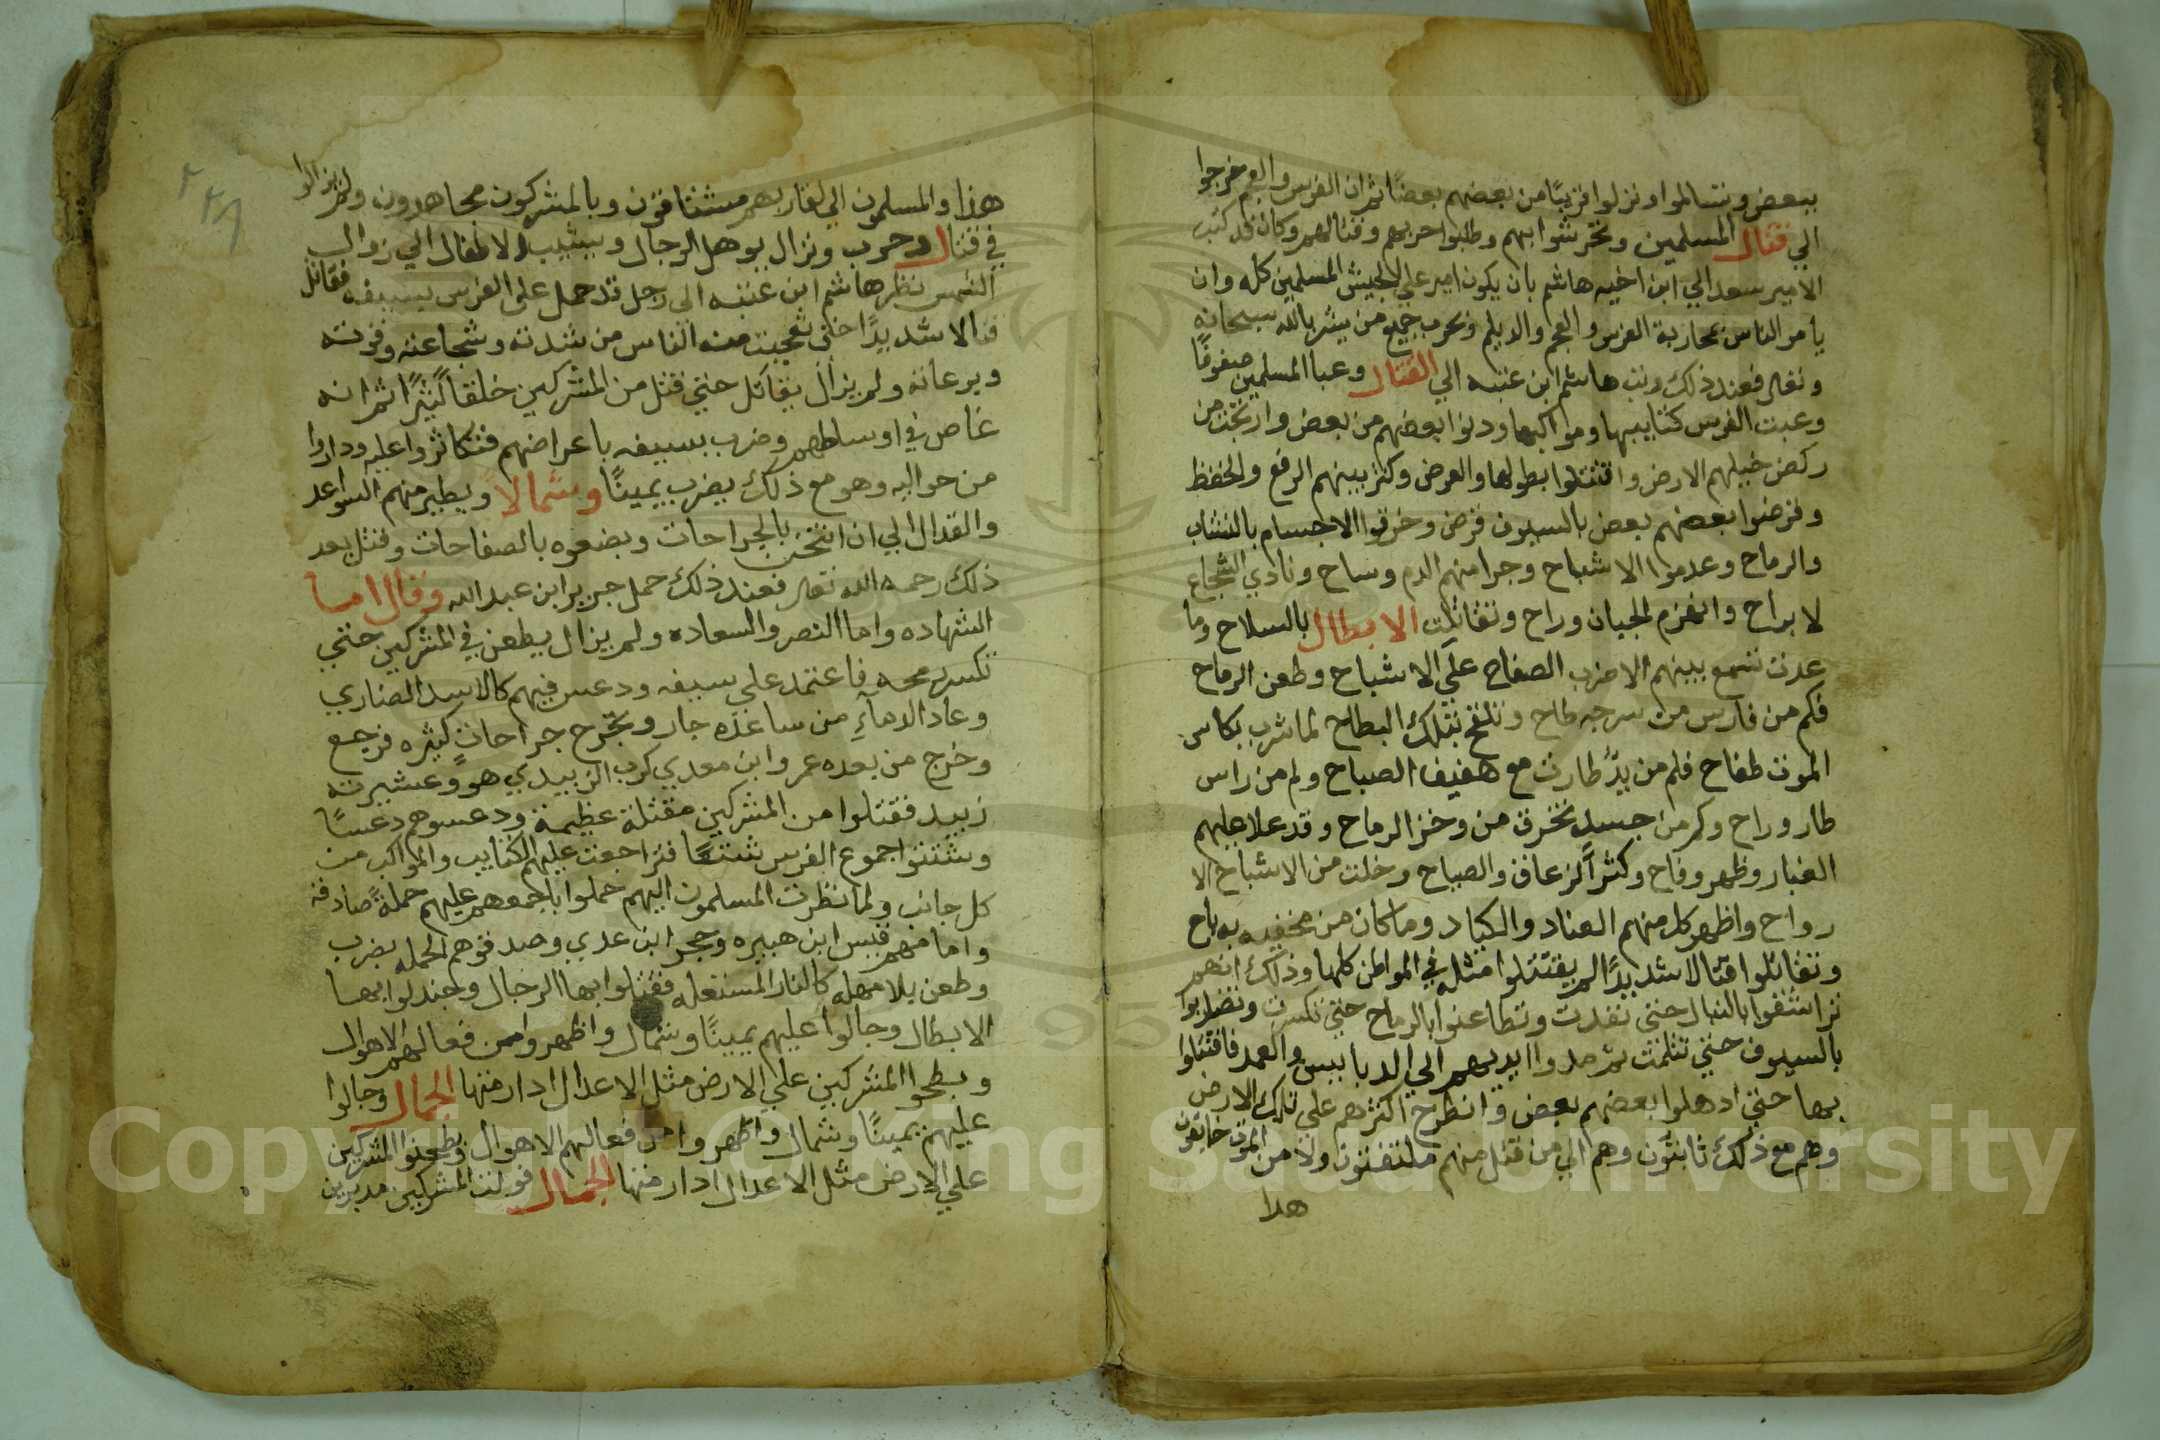 ببعض وتسالموا ونزلوا قريبًا من بعضهم بعضًا ثم ان الفرس والعجم خرجوا
الي قتال المسلمين وتحرشوا بهم وطلبوا حربهم وقتالهم وكان قد كتب
الامير سعد الي ابن اخيه هاشم بان يكون امير علي الجيش المسلمين كله وان
يأمر الناس بمحاربة الفرس والعجم والديلم وبحرب جميع من يشرك بالله سبحانه
وتعالى فعند ذلك وثب هاشم ابن عتبه الي القتال وعبا المسلمين صفوفًا
وعبت الفرس كتايبها ومواكبها ودنوا بعضهم من بعض وارتجت من
ركض خيلهم الارض واقتتلوا بطولها والعرض وكثر بينهم الرفع والخفظ
وقرضوا بعضهم بعض بالسيوف قرض وخرقوا الاجسام بالنشاب
والرماح وعدموا الاشباح وجرا منهم الدم وساح ونادي الشجاع
لا براح وانهزم الجبان وراح وتقاتلت الابطال بالسلاح وما
عدت تسمع بينهم الا ضرب الصفاح علي الاشباح وطعن الرماح
فكم من فارس من سرجه طاح وتلقح بتلك البطاح لما شرب بكاس
الموت طفاح فلم من يدٍ طارت مع هفيف الصباح ولم من راس
طار وراح وكم من جسدٍ تخرق من وخز الرماح وقد علا عليهم
الغبار وظهر وفاح وكثر الزعاق والصياح وخلت من الاشباح الا
رواح واظهر كل منهم العناد والكياد وما كان من مخفيه به باح
وتقاتلوا قتالا شديدًا لم يقتتلوا مثله في المواطن كلها وذلك انهم
تراشقوا بالنبال حتي نفدت وتطاعنوا بالرماح حتي تكسرت وتضاربوا
بالسيوف حتي تثلمت ثم مدوا ايديهم الي الدبابيس والعمد فاقتتلوا
بها حتي ادهلوا بعضهم بعض وانطرح اكثرهم علي تلك الارض
وهم مع ذلك ثابتون وهم الي من قتل منهم ملتفتون ولا من الموت خايفون
هدا
هذا والمسلمون الي لقا ربهم مشتاقون وبالمشركون مجاهدون ولم يزالوا
في قتال وحرب ونزال يوهل الرجال ويشيب الاطفال الي زوال
الشمس نظر هاشم ابن عتبه الي رجل قد حمل على الفرس بسيفه فقاتل
قتالا شديدًا حتي تعجبت منه الناس من شدته وشجاعته وقوته
وبرعاته ولم يزال يقاتل حتي قتل من المشركين خلقا كثيرًا ثم انه
غاص في اوساطهم وضرب بسيفه باعراضهم فتكاثروا عليه وداروا
من حواليه وهو مع ذلك يضرب يمينًا وشمالا ويطير منهم السواعد
والقدال الي ان انتخن بالجراحات وبضعوه بالصفاحات وقتل بعد
ذلك رحمه الله تعالى فعند ذلك حمل جرير ابن عبدالله وقال اما
الشهاده واما النصر والسعاده ولم يزال يطعن في المشركين حتي
تكسر رمحه فاعتمد علي سيفه ودعس فيهم كالاسد الضاري
وعاد الدماءِ من ساعده جار وتجرح جراحاتٍ كثيره فرجع
وخرج من بعده عمروا ابن معدي كرب الزبيدي هو وعشيرته
زبيد فقتلوا من المشركين مقتلة عظيمة ودعسوهم دعسًا
وشتتوا جموع الفرس شتتًا فتراجعت عليهم الكتايب والمواكب من
كل جانب ولما نظرت المسلمون اليهم حملوا باجمعهم عليهم حملةً صادقه
وامامهم قيس ابن هبيره وحجر ابن عدي وصدقوهم الحمله بضرب
وطعن بلا مهله كالنار المشتعله فقتلوا بها الرجال وجندلوا بها
الابطال وجالوا عليهم يمينًا وشمال واظهروا من فعالهم الاهوال
وبطحوا المشركين علي الارض مثل الاعدال ادار منها الجمال وجالوا
عليهم يمينًا وشمال واظهروا من فعالهم الاهوال وبطحوا المشركين
علي الارض مثل الاعدال ادار منها الجمال فولت المشركين مدبرين
٢٢٨
Copyright © King Saud University